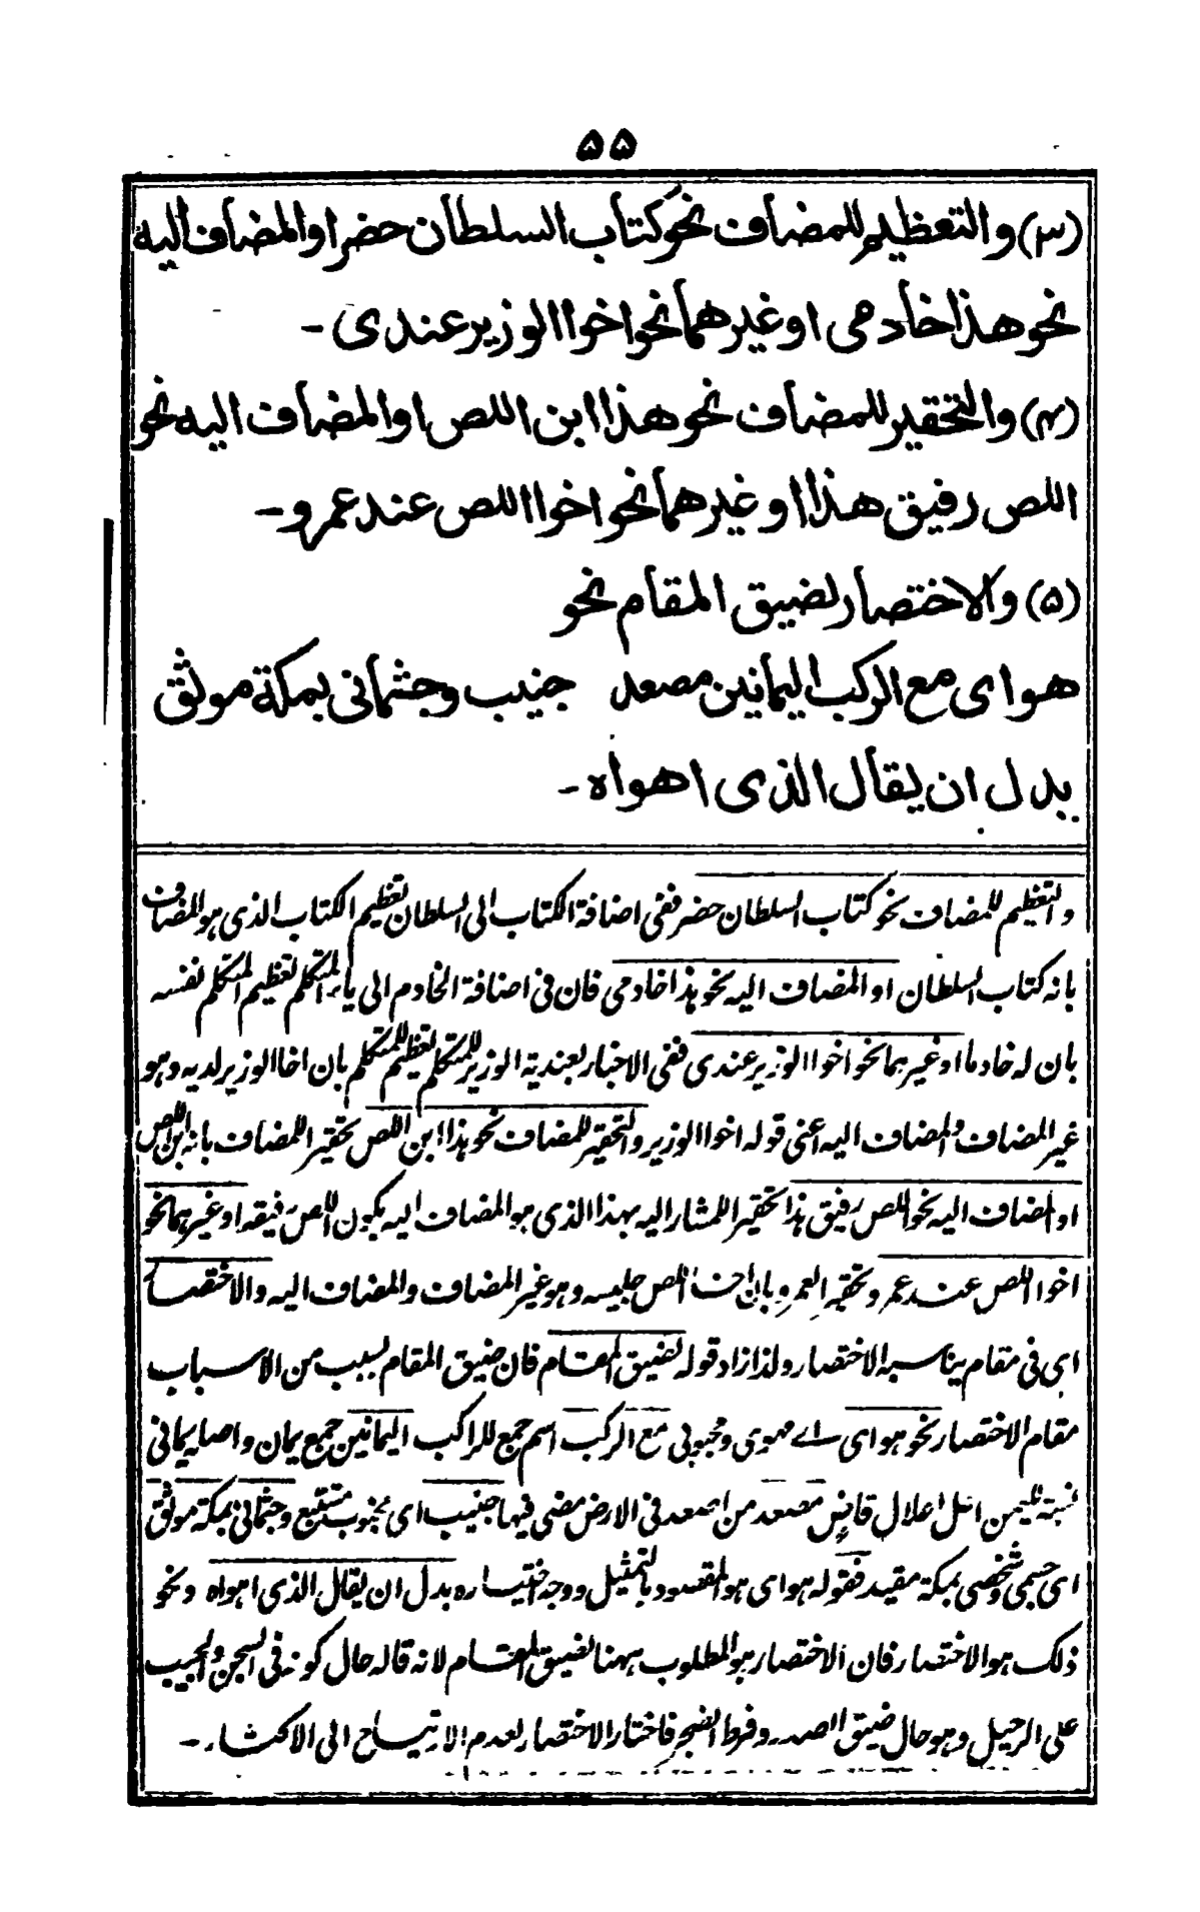 ۵۵
(۳) والتعظيم للمضاف نحو كتاب السلطان حضر او المضاف اليه
نحو هذا خادمى او غيرهما نحو اخوا الوزير عندى -
(۴) والتحقير للمضاف نحو هذا ابن اللص او المضاف اليه نحو
اللص رفيق هذا او غيرهما نحو اخوا اللص عند عمرو -
(۵) والاختصار لضيق المقام نحو
هواى مع الركب اليمانين مصعد جنيب وجثمانى بمكة موثق
بدل ان يقال الذى اهواه -
والتعظيم للمضاف نحو كتاب السلطان حضر ففى اضافة الكتاب الى السلطان تعظيم الكتاب الذى هو المضاف
بانه كتاب السلطان او المضاف اليه نحو هذا خادمى فان فى اضافة الخادم الى ياء المتكلم تعظيم المتكلم نفسه
بان له خادما او غيرهما نحو اخوا الوزير عندى ففى الاخبار بعندية الوزير للمتكلم تعظيم للمتكلم بان اخا الوزير لديه وهو
غير المضاف والمضاف اليه اعنى قوله اخوا الوزير والتحقير للمضاف نحو هذا ابن اللص تحقير اللمضاف بانه ابن اللص
او المضاف اليه نحو اللص رفيق هذا تحقير اللمشار اليه بهذا الذى هو المضاف اليه بكون اللص رفيقه او غيرهما نحو
اخوا اللص عند عمرو تحقير العمرو بان اخا اللص جليسه وهو غير المضاف والمضاف اليه والاختصار
اى فى مقام يناسبه الاختصار ولذا زاد قوله لضيق المقام فان ضيق المقام بسبب من الاسباب
مقام الاختصار نحو هواى اے مهوى ومحبوبى مع الركب اسم جمع للراكب اليمانين جمع يمان واصله يمانى
نسبة لليمن اعل اعلال قاض مصعد من اصعد فى الارض مضى فيها جنيب اى مجنوب مستتبع وجثمانى بمكة موثق
اى جسمى وشخصى بمكة مقيد فقوله هواى هو المقصود بالتمثيل ووجه اختياره بدل ان يقال الذى اهواه ونحو
ذلك هو الاختصار فان الاختصار هو المطلوب ههنا لضيق المقام لانه قاله حال كونه فى السجن والحبيب
على الرحيل وهو حال ضيق الصدر وفرط الضجر فاختار الاختصار لعدم الارتياح الى الاكثار -